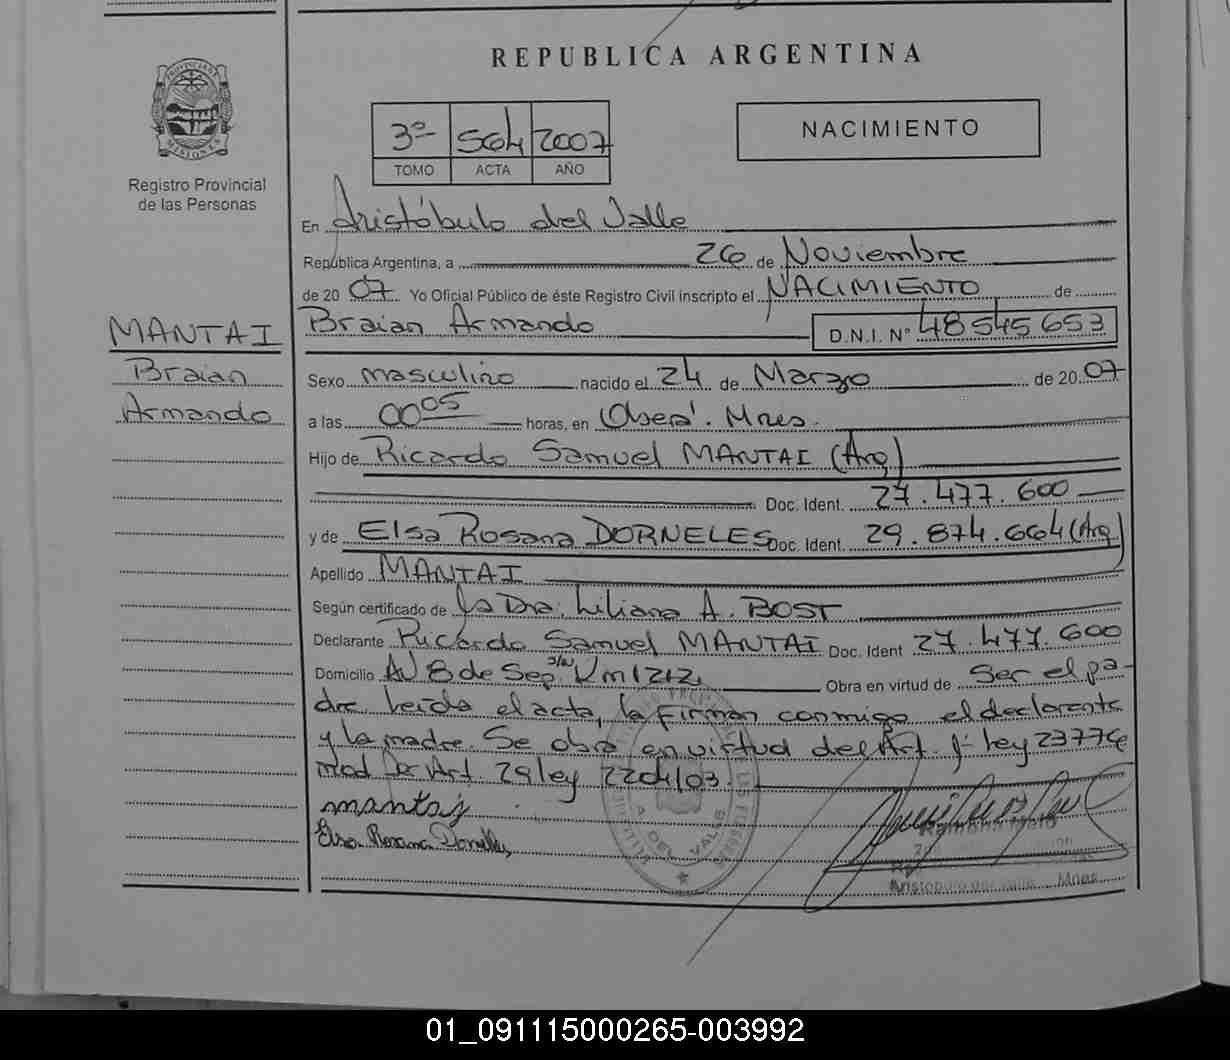 REPUBLICA ARGENTINA
PROVINCIA DE MISIONES
Registro Provincial
de las Personas
3º 564 2007
TOMO ACTA AÑO
NACIMIENTO
En Aristóbulo del Valle
República Argentina, a 26 de Noviembre
de 2007 Yo Oficial Público de éste Registro Civil inscripto el NACIMIENTO de
Braian Armando D.N.I. Nº 48545653
MANTAI
Braian
Armando
Sexo masculino nacido el 24 de Marzo de 2007
a las 00 05 horas, en Oberá. Mnes.
Hijo de Ricardo Samuel MANTAI (Arg)
Doc. Ident. 27.477.600
y de Elsa Rosana DORNELES Doc. Ident. 29.874.664 (Arg)
Apellido MANTAI
Según certificado de la Dra. Liliana A. BOST
Declarante Ricardo Samuel MANTAI Doc. Ident 27.477.600
Domicilio AV 8 de Sep. s/n Km 1212 Obra en virtud de Ser el pa-
dre Leida el acta, la firman conmigo el declarante
y la madre. Se obra en virtud del Art. 1º ley 23776
mod Art. 29 ley 2204/03.
mantai
Elsa Rosana Dornelles
A DEL VALLE
Aristobulo del Valle Mnes
01_091115000265-003992